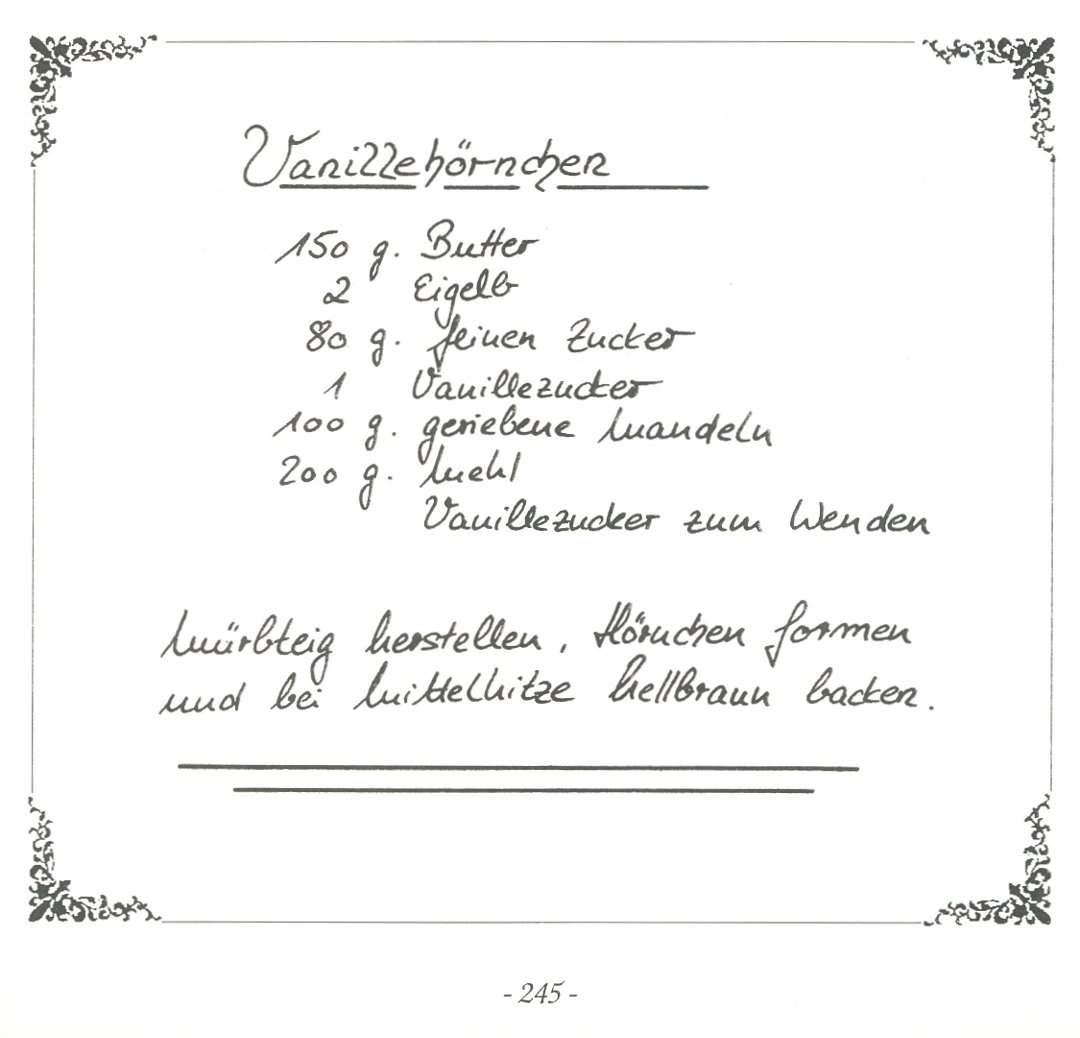 Vanillehörnchen
150 g. Butter
2 Eigelb
80 g. feinen Zucker
1 Vanillezucker
100 g. geriebene Mandeln
200 g. Mehl
Vanillezucker zum Wenden
Mürbteig herstellen, Hörnchen formen
und bei Mittelhitze hellbraun backen.
- 245 -